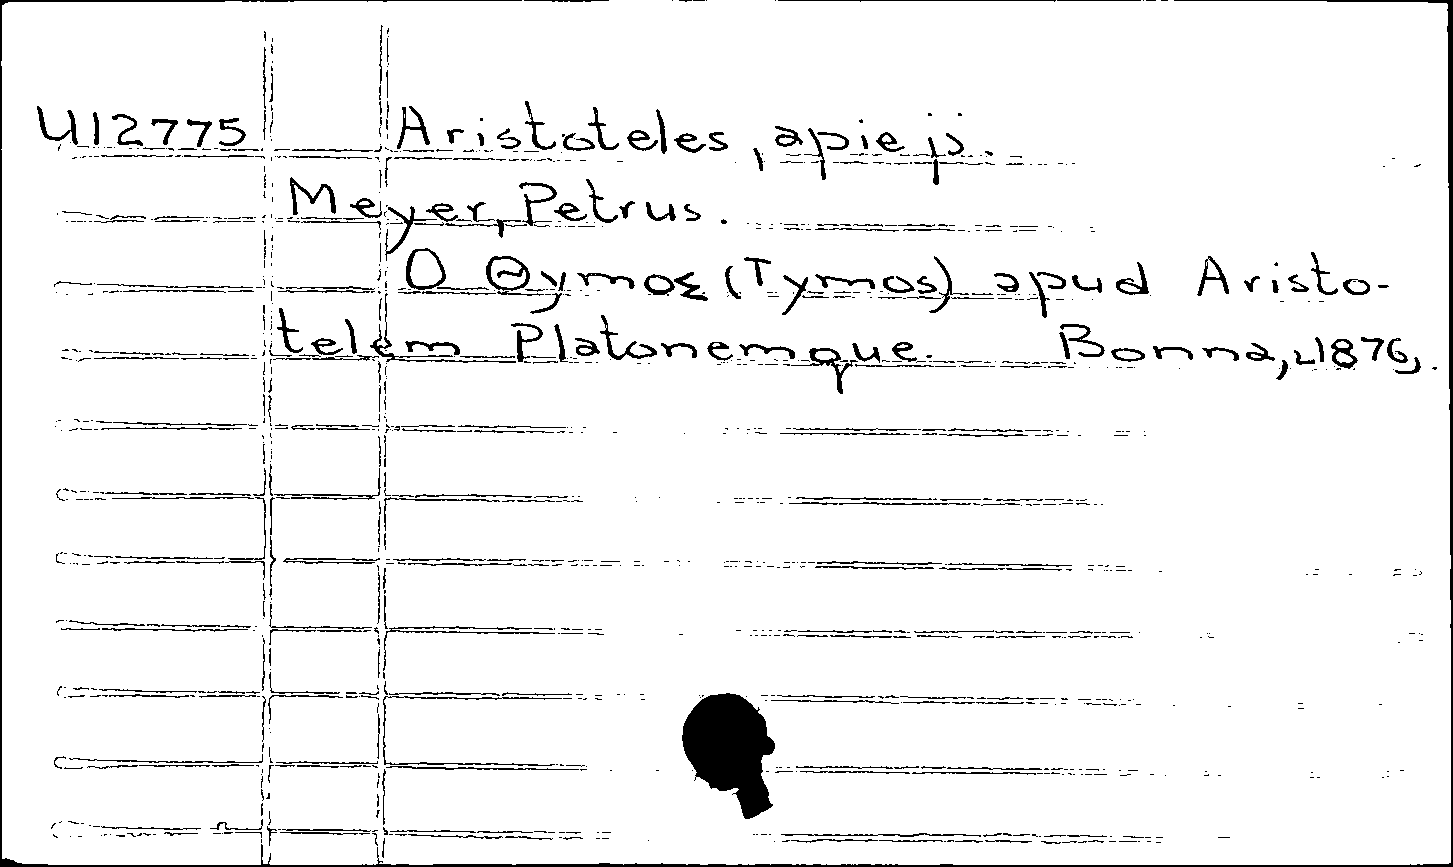 U12775 Aristoteles, apie jį.
Meyer, Petrus.
O Θymoς (Tymos) apud Aristo-
telem Platonemque. Bonna, 1876.